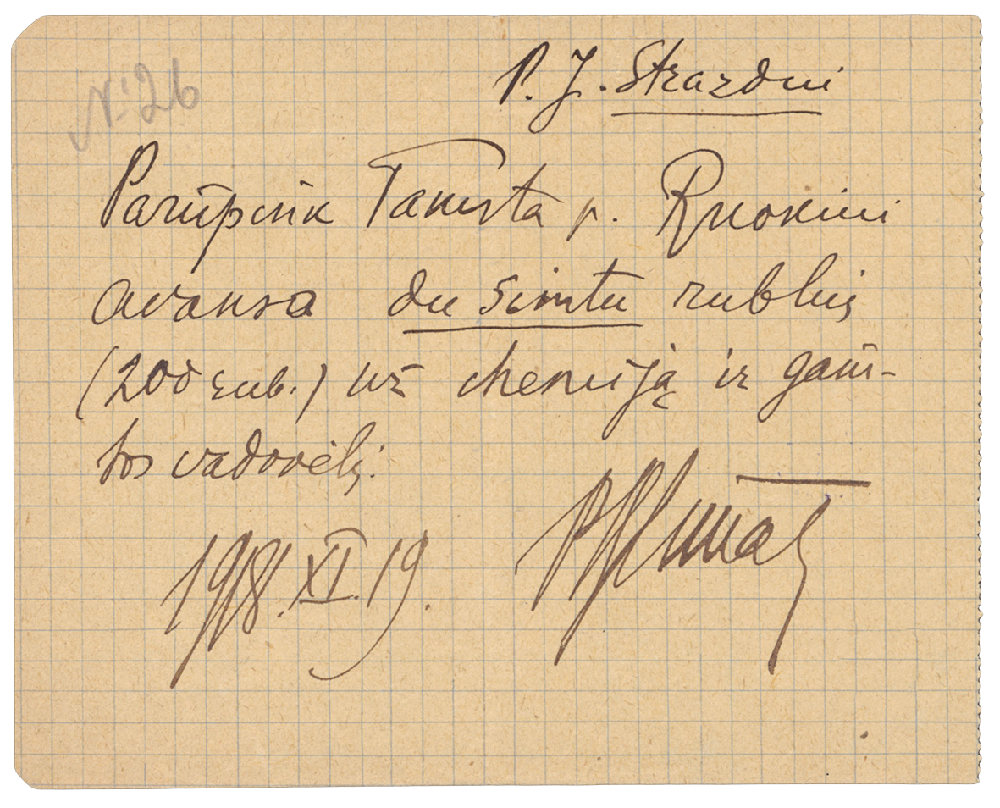 № 26
P. J. Strazdui
Parūpink Tamsta p. Ruokiui
avansa du simtu rublių
(200 rub.) už chemiją ir gam-
tos vadovėlį.
1918.XI.19.